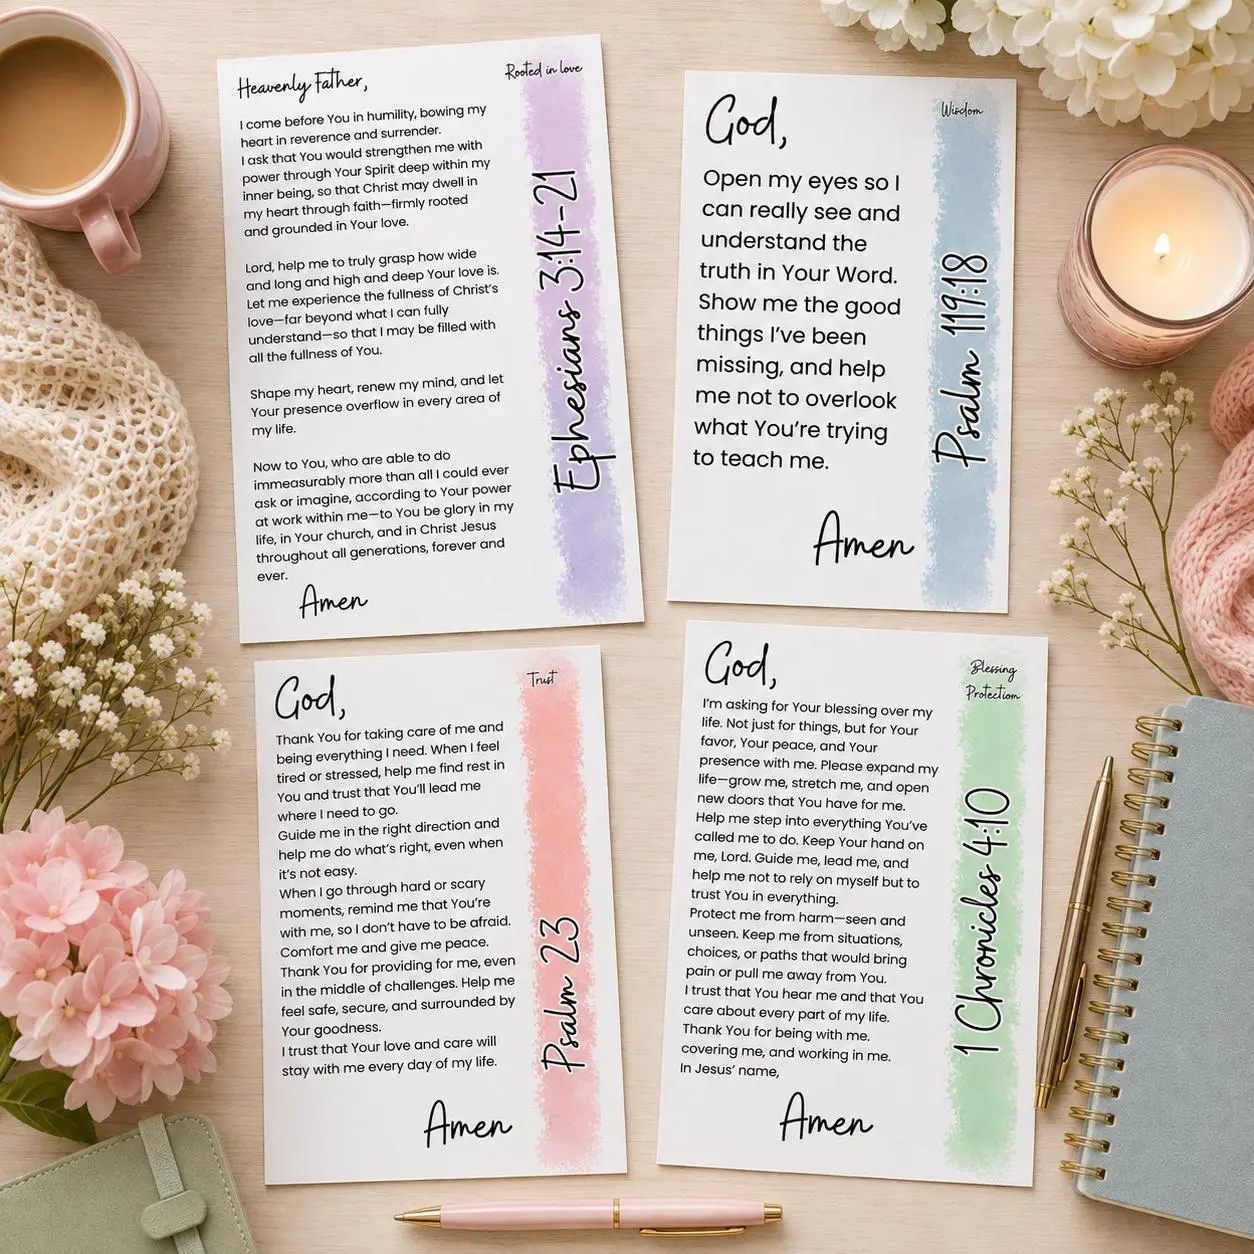 Heavenly Father,
Rooted in love
I come before You in humility, bowing my
heart in reverence and surrender.
I ask that You would strengthen me with
power through Your Spirit deep within my
inner being, so that Christ may dwell in
my heart through faith—firmly rooted
and grounded in Your love.
Lord, help me to truly grasp how wide
and long and high and deep Your love is.
Let me experience the fullness of Christ's
love—far beyond what I can fully
understand—so that I may be filled with
all the fullness of You.
Shape my heart, renew my mind, and let
Your presence overflow in every area of
my life.
Now to You, who are able to do
immeasurably more than all I could ever
ask or imagine, according to Your power
at work within me—to You be glory in my
life, in Your church, and in Christ Jesus
throughout all generations, forever and
ever.
Amen
Ephesians 3:14-21
God,
Wisdom
Open my eyes so I
can really see and
understand the
truth in Your Word.
Show me the good
things I've been
missing, and help
me not to overlook
what You're trying
to teach me.
Amen
Psalm 119:18
God,
Trust
Thank You for taking care of me and
being everything I need. When I feel
tired or stressed, help me find rest in
You and trust that You'll lead me
where I need to go.
Guide me in the right direction and
help me do what's right, even when
it's not easy.
When I go through hard or scary
moments, remind me that You're
with me, so I don't have to be afraid.
Comfort me and give me peace.
Thank You for providing for me, even
in the middle of challenges. Help me
feel safe, secure, and surrounded by
Your goodness.
I trust that Your love and care will
stay with me every day of my life.
Amen
Psalm 23
God,
Blessing
Protection
I'm asking for Your blessing over my
life. Not just for things, but for Your
favor, Your peace, and Your
presence with me. Please expand my
life—grow me, stretch me, and open
new doors that You have for me.
Help me step into everything You've
called me to do. Keep Your hand on
me, Lord. Guide me, lead me, and
help me not to rely on myself but to
trust You in everything.
Protect me from harm—seen and
unseen. Keep me from situations,
choices, or paths that would bring
pain or pull me away from You.
I trust that You hear me and that You
care about every part of my life.
Thank You for being with me.
covering me, and working in me.
In Jesus' name,
Amen
1 Chronicles 4:10